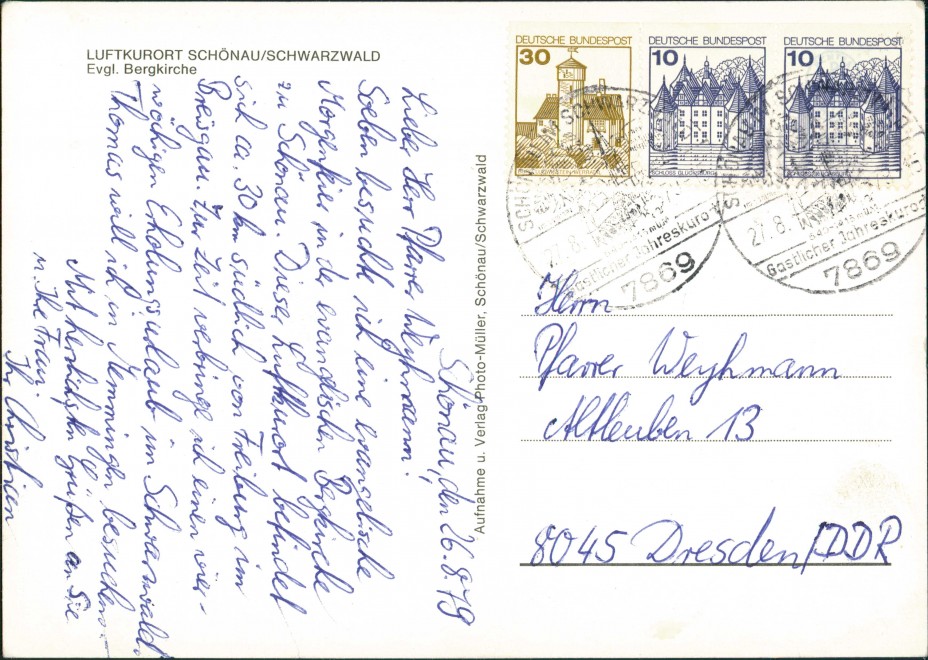 LUFTKURORT SCHÖNAU/SCHWARZWALD
Evgl. Bergkirche
Schönau, den 26.8.79
Liebe Herr Pfarrer Weyhmann!
Soeben besucht ich eine evangelische
Morgenfeier in der evangelischen Bergkirche
zu Schönau. Dieser Luftkurort befindet
sich ca. 30 km südlich von Freiburg im
Breisgau. Zur Zeit verbringe ich einen vier-
wöchigen Erholungsurlaub im Schwarzwald.
Thomas will ich in Memmingen besuchen. –
Mit herzlichsten Grüßen an Sie
u. Ihre Frau
Ihr Christian
Aufnahme u. Verlag Photo-Müller, Schönau/Schwarzwald
DEUTSCHE BUNDESPOST
30
DEUTSCHE BUNDESPOST
10
SCHLOSS GLÜCKSBURG
DEUTSCHE BUNDESPOST
10
27.8.
Gastlicher Jahreskurort
7869
27.8.
Gastlicher Jahreskurort
7869
Herrn
Pfarrer Weyhmann
Altleuben 13
8045 Dresden/DDR